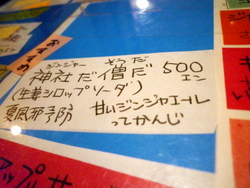 おすすめ
ジンジャー そうだ
神社だ僧だ 500エン
(生姜シロップソーダ)
夏風邪予防 甘いジンジャエール
ってかんじ
アップルサ